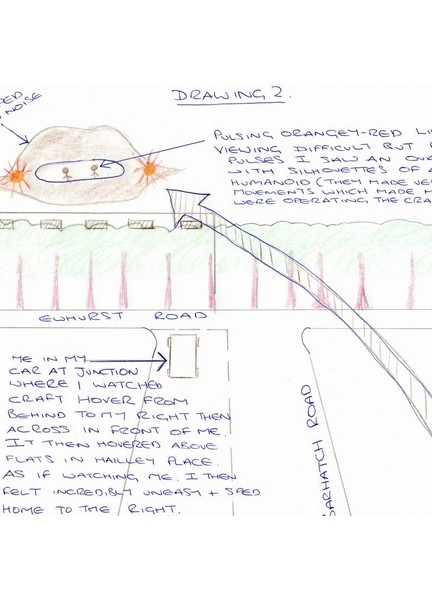 DRAWING 2.
NOISE
PULSING ORANGEY-RED
VIEWING DIFFICULT BUT
PULSES I SAW AN
WITH SILHOUETTES OF
HUMANOID (THEY MADE
MOVEMENTS WHICH MADE
WERE OPERATING THE
EWHURST ROAD
ME IN MY
CAR AT JUNCTION
WHERE I WATCHED
CRAFT HOVER FROM
BEHIND TO MY RIGHT THEN
ACROSS IN FRONT OF ME.
IT THEN HOVERED ABOVE
FLATS IN HAILLEY PLACE.
AS IF WATCHING ME. I THEN
FELT INCREDIBLY UNEASY + SPED
HOME TO THE RIGHT.
ROAD